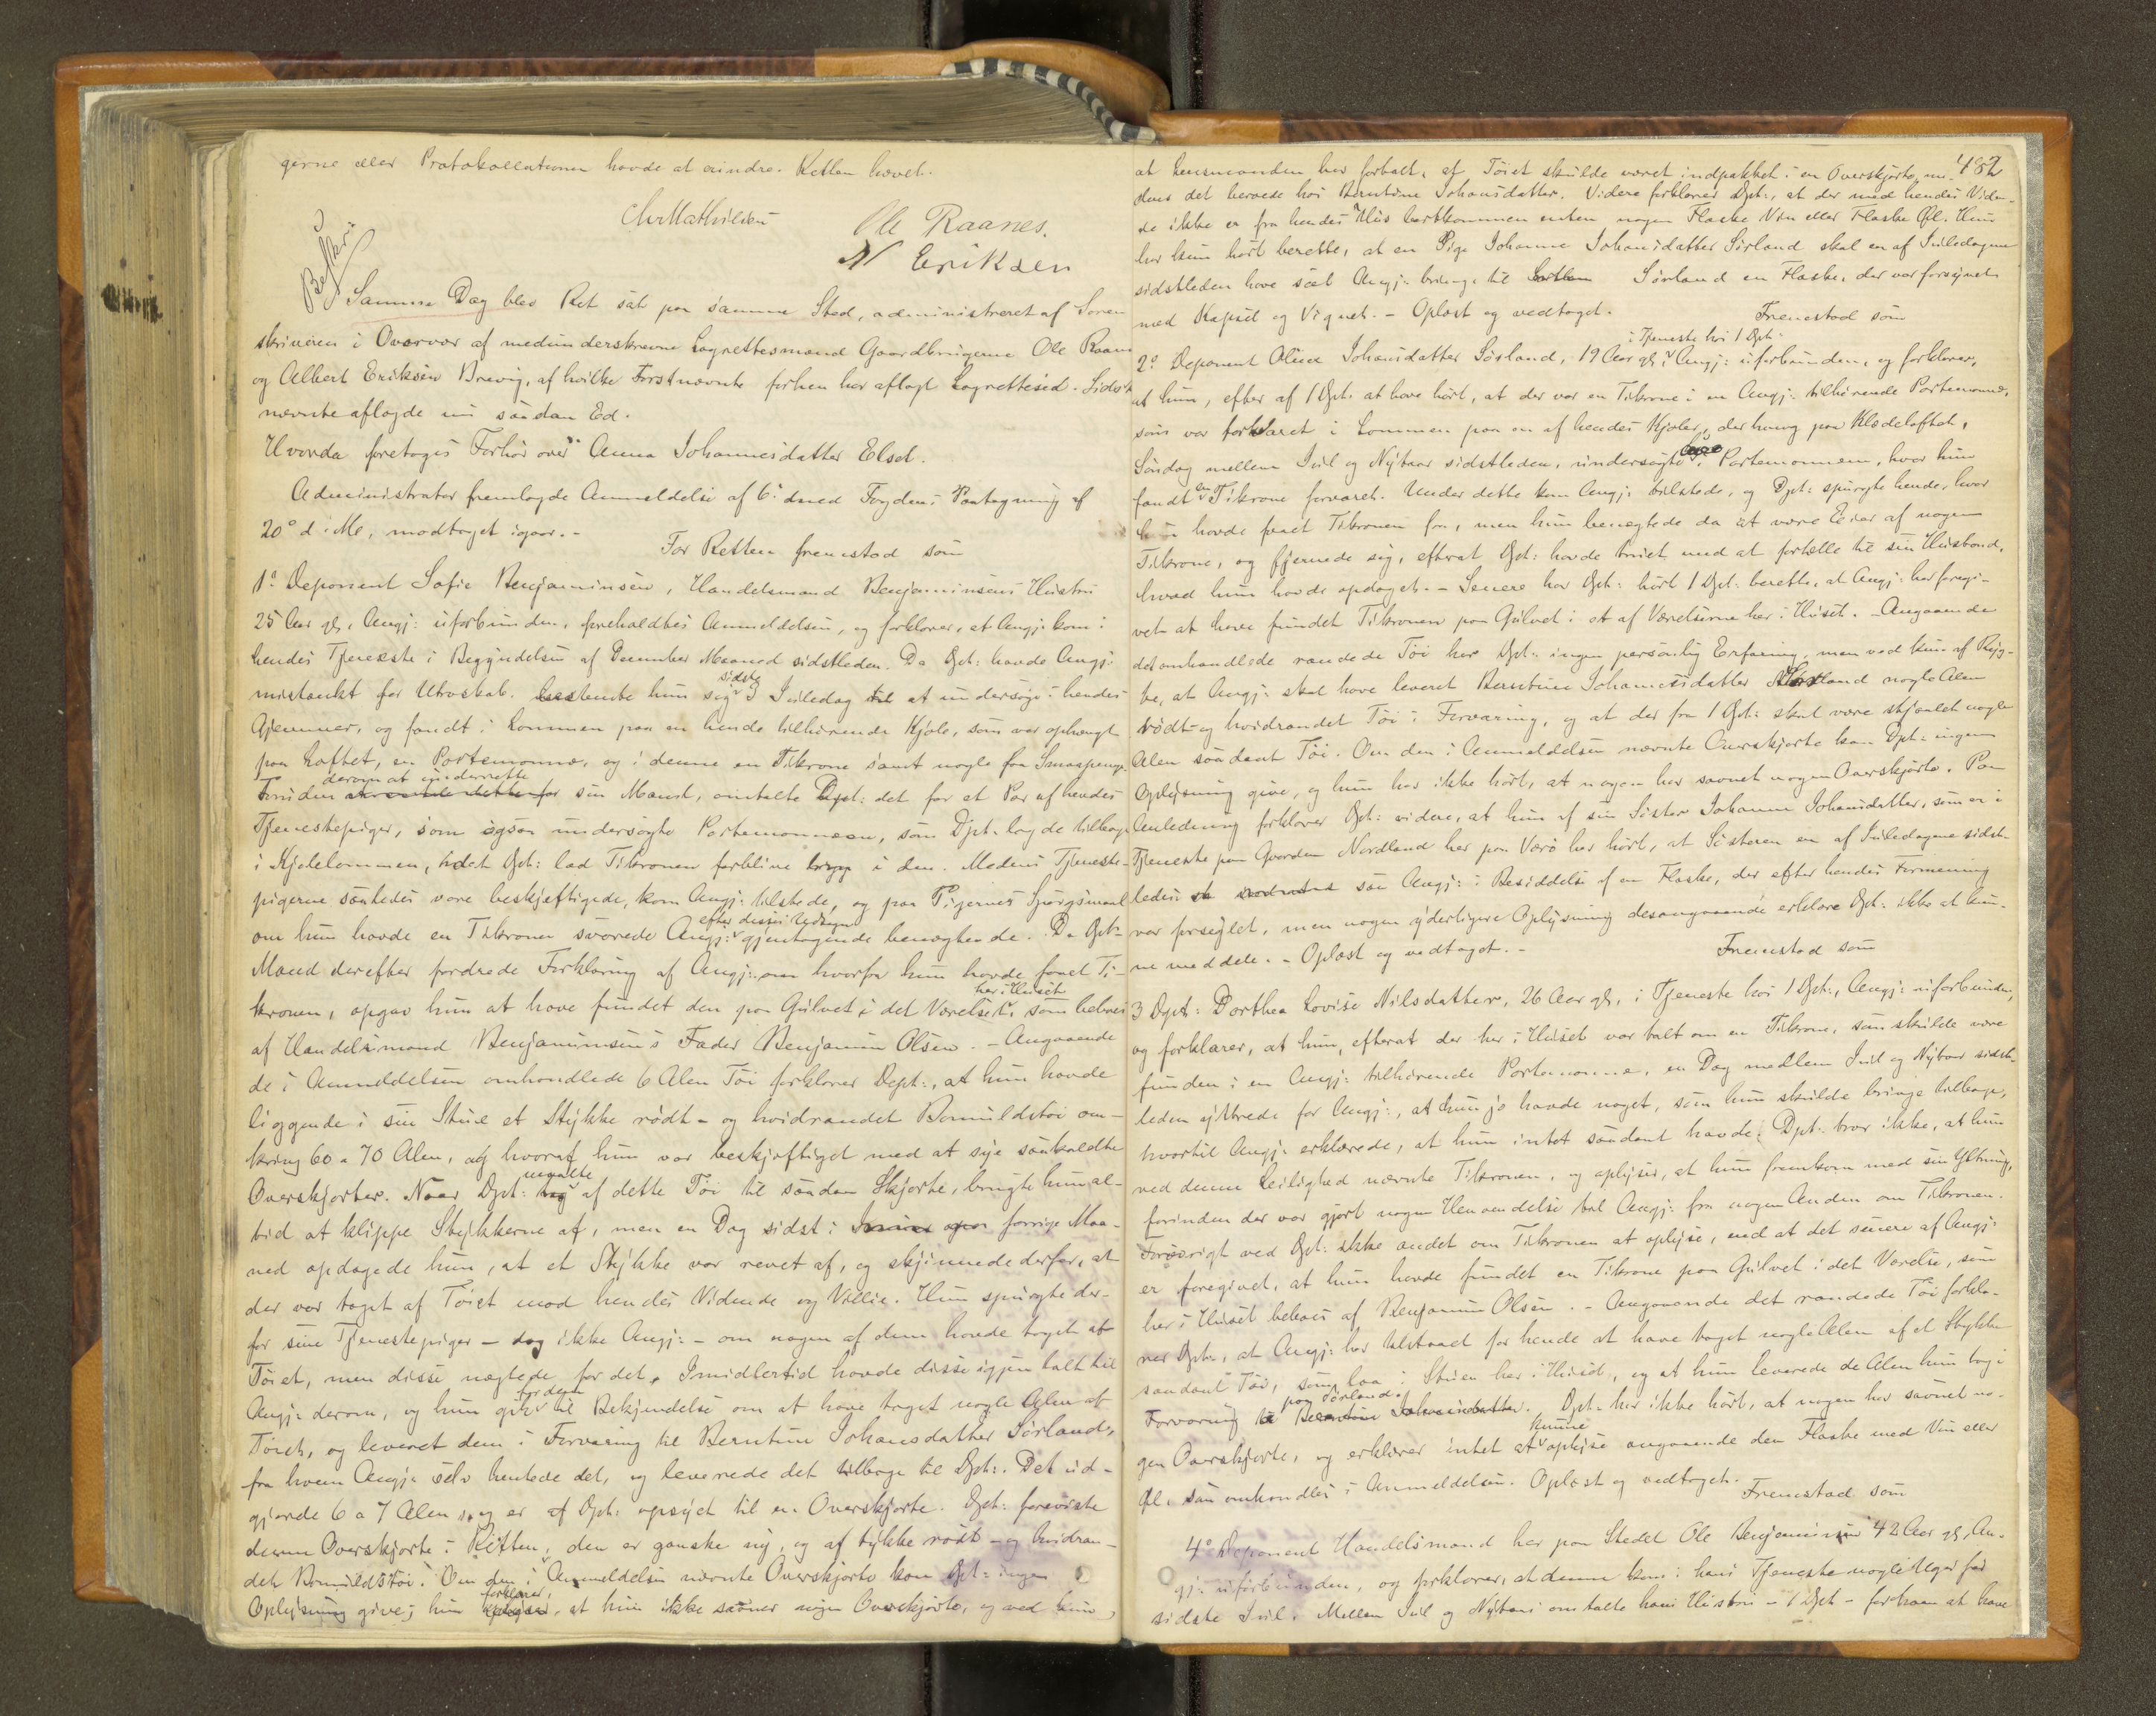 gerne eller Protokollationen havde at erindre. Retten hævet.
Chr Mathiesen
Ole Raanes.
A Eriksen
Beskr:
Samme Dag blev Ret sat paa samme Sted, administreret af Soren
skriveren i Overvær af medunderskrevne Lagrettesmænd Gaardbrugerne Ole Raanes
og Albert Eriksen Brevig, af hvilke Forstnævnte forhen har aflagt Lagrettesed. Sidst-
nævnte aflagde nu saadan Ed.
Hvorda foretoges Forhør over Anna Johannesdatter Elset.
Administrator fremlagde Anmeldelse af 6: d med Fogdens Paategning af
20° d. Me, modtaget igaar. -
For Retten fremstod som
1° Deponent Sofie Benjaminsen, Handelsmand Benjaminsens Hustru
25 Aar gl, Angj: uforbunden, foreholdtes Anmeldelsen, og forklarer, at Angj: kom i
hendes Tjeneste i Begyndelsen af December Maaned sidstleden. Da Dpt: havde Angj:
mistænkt for Utroskab, bestemte hun sig sidste 3 Juledag til at undersøge hendes
Gjemmer, og fandt i Lommen paa en hende tilhørende Kjole, som var ophængt
paa Loftet, en Portemonnæ, og i denne en Tikrone samt nogle faa Smaapenge.
Forinden derom at underrette sin Mand, omtalte Dpt: det for et Par af hendes
Tjenestepiger, som ogsaa undersøgte Portemonnæen, som Dpt. lagde tilbage
i Kjolelommen, idet Dpt: lod Tikronen forblive i den. Medens Tjeneste-
pigerne saaledes vare beskjæftigede, kom Angj: tilstede, og paa Pigernes Spørgsmaal
om hun havde en Tikrone svarede Angj: efter disses Udsagn gjentagende benægtende. Da Dpt:
Mand derefter fordrede Forklaring af Angj: om hvorfra hun havde faaet Ti-
kronen, opgav hun at have fundet den paa Gulvet i det Værelse her i Huset, som beboes
af Handelsmand Benjaminsens Fader Benjamin Olsen. - Angaaende
de i Anmeldelsen omhandlede 6 Alen Tøi forklarer Dept:, at hun havde
liggende i sin Stue et Stykke rødt- og hvidrandet Bomuldstøi om-
kring 60 a 70 Alen, af hvoraf hun var beskjæftiget med at sye saakaldte
Overskjorter. Naar Dpt: maalte af dette Tøi til saadan Skjorte, brugte hun al-
tid at klippe Stykkerne af, men en Dag sidst i forrige Maa-
ned opdagede hun, at et Stykke var revet af, og skjønnede derfor, at
der var taget af Tøiet mod hendes Vidende og Villie. Hun spurgte der-
for sine Tjenestepiger - dog ikke Angj: - om nogen af dem havde taget af
Tøiet, men disse nægtede for det. Imidlertid havde disse igjen talt til
Angj: derom, og hun gik for dem til Bekjendelse om at have taget nogle Alen af
Tøiet, og leveret dem i Forvaring til Berntine Johansdatter Sørland,
fra hvem Angj: selv hentede det, og leverede det tilbage til Dpt:. Det ud-
gjorde 6 a 7 Alen, og er af Dpt: opsyet til en Overskjorte. Dpt: foreviste
denne Overskjorte i Retten, den er ganske ny, og af tykke rødt- og hvidran-
det Bomuldstøi. Om den i Anmeldelsen nævnte Overskjorte kan Dpt: ingen
Oplysning give; hun forklarer, at hun ikke savner nogen Overskjorte, og ved kun,
482
at Lensmanden har fortalt, at Tøiet skulde været indpakket i en Overskjorte, me-
dens det beroede hos Berntine Johansdatter. Videre forklarer Dpt:, at der med hendes Viden-
de ikke er fra hendes Hus bortkommen enten nogen Flaske Vin eller Flaske Øl. Hun
har kun hørt berette, at en Pige Johanne Johansdatter Sørland skal en af Juledagene
sidstleden have seet Angj: bringe til Sørland en Flaske, der var forsynet
med Kapsel og Vignet. - Oplæst og vedtaget.
Fremstod som
2° Deponent Oline Johansdatter Sørland, 19 Aar gl, i Tjeneste hos 1 Dpt: Angj: uforbunden, og forklarer,
at hun, efter af 1 Dpt. at have hørt, at der var en Tikrone i en Angj: tilhørende Portemonnæ,
som var forvaret i Lommen paa en af hendes Kjoler, der hang paa Klædeloftet,
Søndag mellem Jul og Nytaar sidstleden, undersøgte Portemonnæen, hvor hun
fandt en Tikrone forvaret. Under dette kom Angj: tilstede, og Dpt: spurgte hende, hvor
hun havde faaet Tikronen fra, men hun benægtede da at være Eier af nogen
Tikrone, og fjernede sig, efterat Dpt: havde truet med at fortælle til sin Husbond,
hvad hun havde opdaget. - Senere har Dpt: hørt 1 Dpt: berette, at Angj: har foregi-
vet at have fundet Tikronen paa Gulvet i et af Værelserne her i Huset. - Angaaende
det omhandlede randede Tøi har Dpt: ingen personlig Erfaring, men ved kun af Ryg-
te, at Angj: skal have leveret Berntine Johannesdatter Sørland nogle Alen
rødt- og hvidrandet Tøi i Forvaring, og at der fra 1 Dpt: skal være stjaalet nogle
Alen saadant Tøi. Om den i Anmeldelsen nævnte Overskjorte kan Dpt: ingen
Oplysning give, og hun har ikke hørt, at nogen har savnet nogen Overskjorte. Paa
Anledning forklarer Dpt: videre, at hun af sin Søster Johanne Johansdatter, som er i
Tjeneste paa Gaarden Nordland her paa Værø har hørt, at Søsteren en af Juledagene sidst-
leden saa Angj: i Besiddelse af en Flaske, der efter hendes Formening
var forseglet, men nogen yderligere Oplysning desangaaende erklærer Dpt: ikke at kun-
ne meddele. - Oplæst og vedtaget. -
Fremstod som
3 Dpt: Dorthea Lovise Nilsdatter, 26 Aar gl, i Tjeneste hos 1 Dpt:, Angj: uforbunden,
og forklarer, at hun, efterat der her i Huset var talt om en Tikrone, som skulde være
funden i en Angj: tilhørende Portemonnæ, en Dag mellem Jul og Nytaar sidst-
leden ytrede for Angj:, at hun jo havde noget, som hun skulde bringe tilbage,
hvortil Angj: erklærede, at hun intet saadant havde. Dpt: tror ikke, at hun
ved denne Leilighed nævnte Tikronen, og oplyser, at hun fremkom med sin Ytring,
forinden der var gjort nogen Henvendelse til Angj: fra nogen Anden om Tikronen.
Forøvrigt ved Dpt: ikke andet om Tikronen at oplyse, end at det senere af Angj:
er foregivet, at hun havde fundet en Tikrone paa Gulvet i det Værelse, som
her i Huset beboes af Benjamin Olsen. - Angaaende det randede Tøi forkla-
rer Dpt:, at Angj: har tilstaaet for hende at have taget nogle Alen af et Stykke
saadant Tøi, som laa i Stuen her i Huset, og at hun leverede de Alen hun tog i
Forvaring paa Sørland. Dpt: har ikke hørt, at nogen har savnet no-
gen Overskjorte, og erklærer intet at kunne oplyse angaaende den Flaske med Vin eller
Øl, som omhandles i Anmeldelsen. Oplæst og vedtaget.
Fremstod som
4° Deponent Handelsmand her paa Stedet Ole Benjaminsen 42 Aar gl, An-
gj: uforbunden, og forklarer, at denne kom i hans Tjeneste nogle Uger før
sidste Jul. Mellem Jul og Nytaar omtalte hans Hustru - 1 Dpt - for ham at have